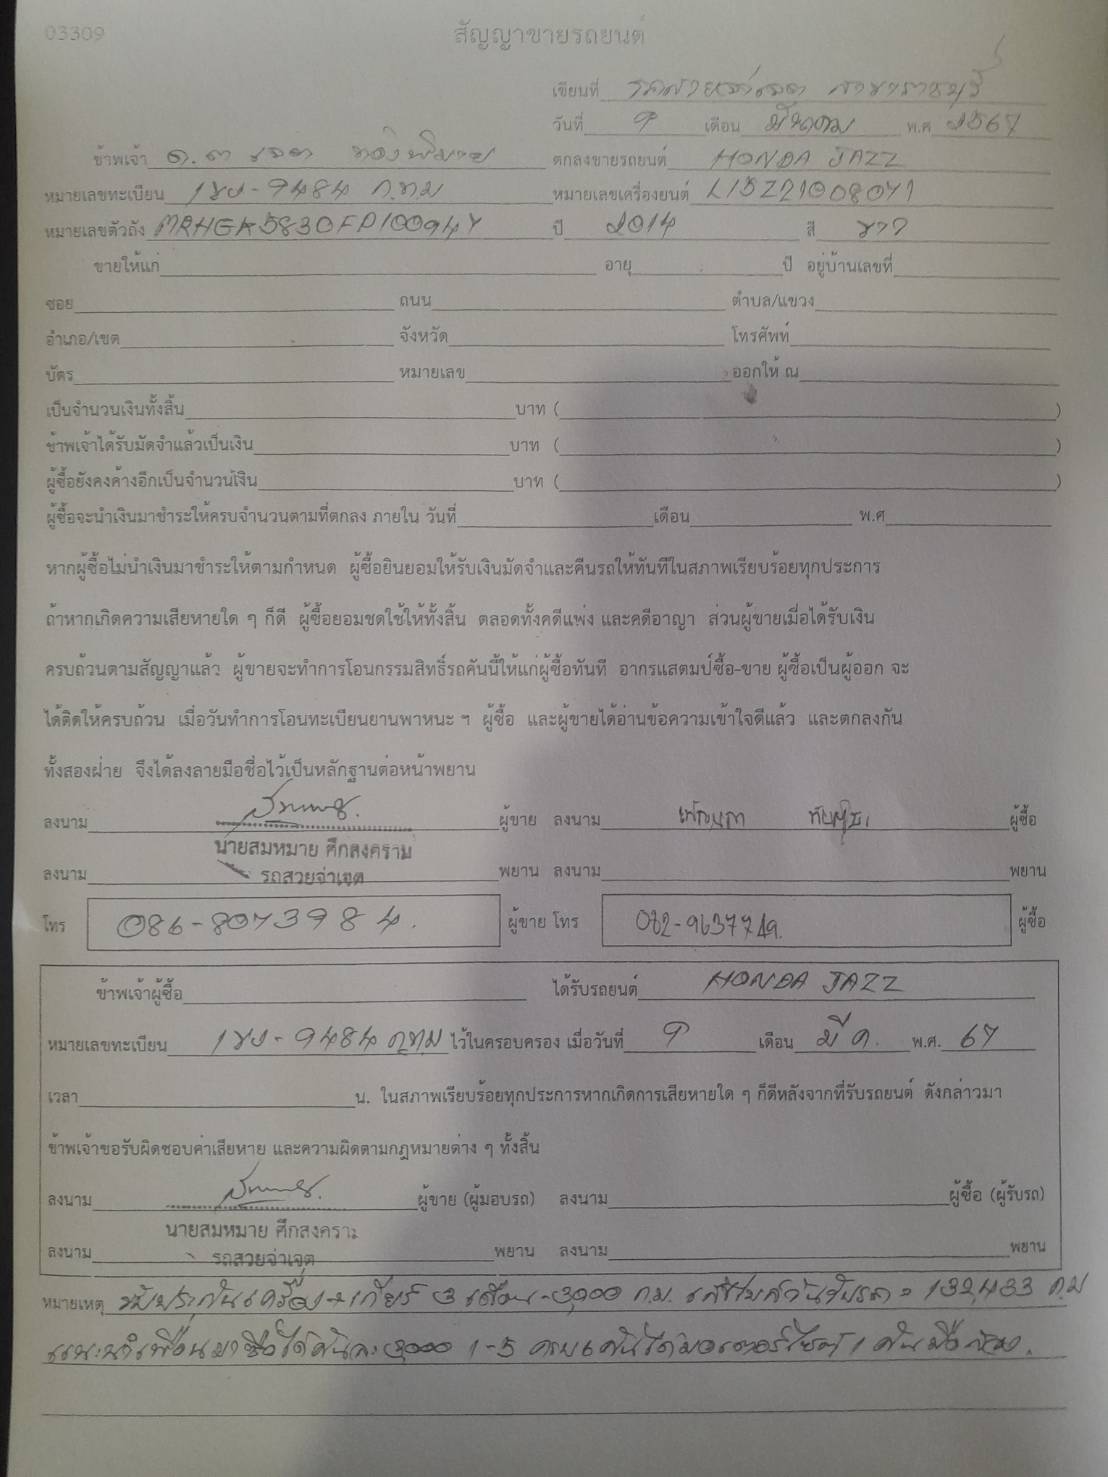 03309
สัญญาขายรถยนต์
เขียนที่ รถสวยจ่าเจต สาขาราชบุรี
วันที่ 9 เดือน มีนาคม พ.ศ 2567
ข้าพเจ้า ด.ต เจต ตกลงขายรถยนต์ HONDA JAZZ
หมายเลขทะเบียน 1ขง-9484 ก.ท.ม หมายเลขเครื่องยนต์ L15Z21008071
หมายเลขตัวถัง MRHGK5830FP100947 ปี 2014 สี ขาว
ขายให้แก่ อายุ ปี อยู่บ้านเลขที่
ซอย ถนน ตำบล/แขวง
อำเภอ/เขต จังหวัด โทรศัพท์
บัตร หมายเลข ออกให้ ณ
เป็นจำนวนเงินทั้งสิ้น บาท ( )
ข้าพเจ้าได้รับมัดจำแล้วเป็นเงิน บาท ( )
ผู้ซื้อยังคงค้างอีกเป็นจำนวนเงิน บาท ( )
ผู้ซื้อจะนำเงินมาชำระให้ครบจำนวนตามที่ตกลง ภายใน วันที่ เดือน พ.ศ
หากผู้ซื้อไม่นำเงินมาชำระให้ตามกำหนด ผู้ซื้อยินยอมให้รับเงินมัดจำและคืนรถให้ทันทีในสภาพเรียบร้อยทุกประการ
ถ้าหากเกิดความเสียหายใด ๆ ก็ดี ผู้ซื้อยอมชดใช้ให้ทั้งสิ้น ตลอดทั้งคดีแพ่ง และคดีอาญา ส่วนผู้ขายเมื่อได้รับเงิน
ครบถ้วนตามสัญญาแล้ว ผู้ขายจะทำการโอนกรรมสิทธิ์รถคันนี้ให้แก่ผู้ซื้อทันที อากรแสตมป์ซื้อ-ขาย ผู้ซื้อเป็นผู้ออก จะ
ได้ติดให้ครบถ้วน เมื่อวันทำการโอนทะเบียนยานพาหนะ ฯ ผู้ซื้อ และผู้ขายได้อ่านข้อความเข้าใจดีแล้ว และตกลงกัน
ทั้งสองฝ่าย จึงได้ลงลายมือชื่อไว้เป็นหลักฐานต่อหน้าพยาน
ลงนาม ผู้ขาย ลงนาม ผู้ซื้อ
นายสมหมาย ศึกสงคราม
ลงนาม รถสวยจ่าเจต พยาน ลงนาม พยาน
โทร 086-8073984. ผู้ขาย โทร 062-9637749. ผู้ซื้อ
ข้าพเจ้าผู้ซื้อ ได้รับรถยนต์ HONDA JAZZ
หมายเลขทะเบียน 1ขง-9484 ก.ท.ม ไว้ในครอบครอง เมื่อวันที่ 9 เดือน มี.ค. พ.ศ. 67
เวลา น. ในสภาพเรียบร้อยทุกประการหากเกิดการเสียหายใด ๆ ก็ดีหลังจากที่รับรถยนต์ ดังกล่าวมา
ข้าพเจ้าขอรับผิดชอบค่าเสียหาย และความผิดตามกฎหมายต่าง ๆ ทั้งสิ้น
ลงนาม ผู้ขาย (ผู้มอบรถ) ลงนาม ผู้ซื้อ (ผู้รับรถ)
นายสมหมาย ศึกสงคราม
ลงนาม รถสวยจ่าเจต พยาน ลงนาม พยาน
หมายเหตุ รับประกันเครื่อง+เกียร์ 3 เดือน-3,000 ก.ม. เลขไมล์วันรับรถ = 132,433 ก.ม
แนะนำเพื่อนมาซื้อได้คันละ 3000 1-5 ครบ 6 คันได้มอเตอร์ไซค์ 1 คัน